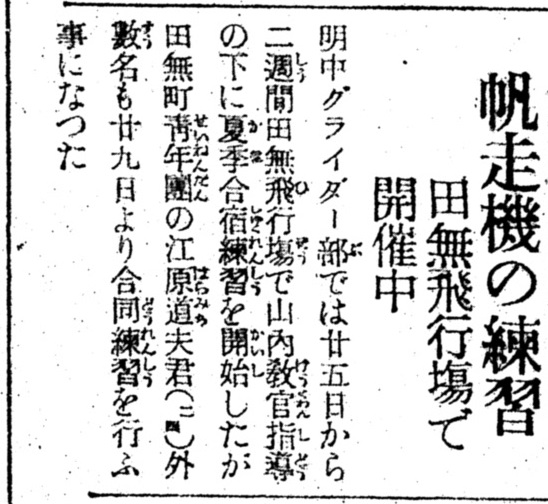 帆走機の練習
田無飛行場で
開催中
明中グライダー部では廿五日から
二週間田無飛行場で山内教官指導
の下に夏季合宿練習を開始したが
田無町青年團の江原道夫君(二四)外
數名も廿九日より合同練習を行ふ
事になつた